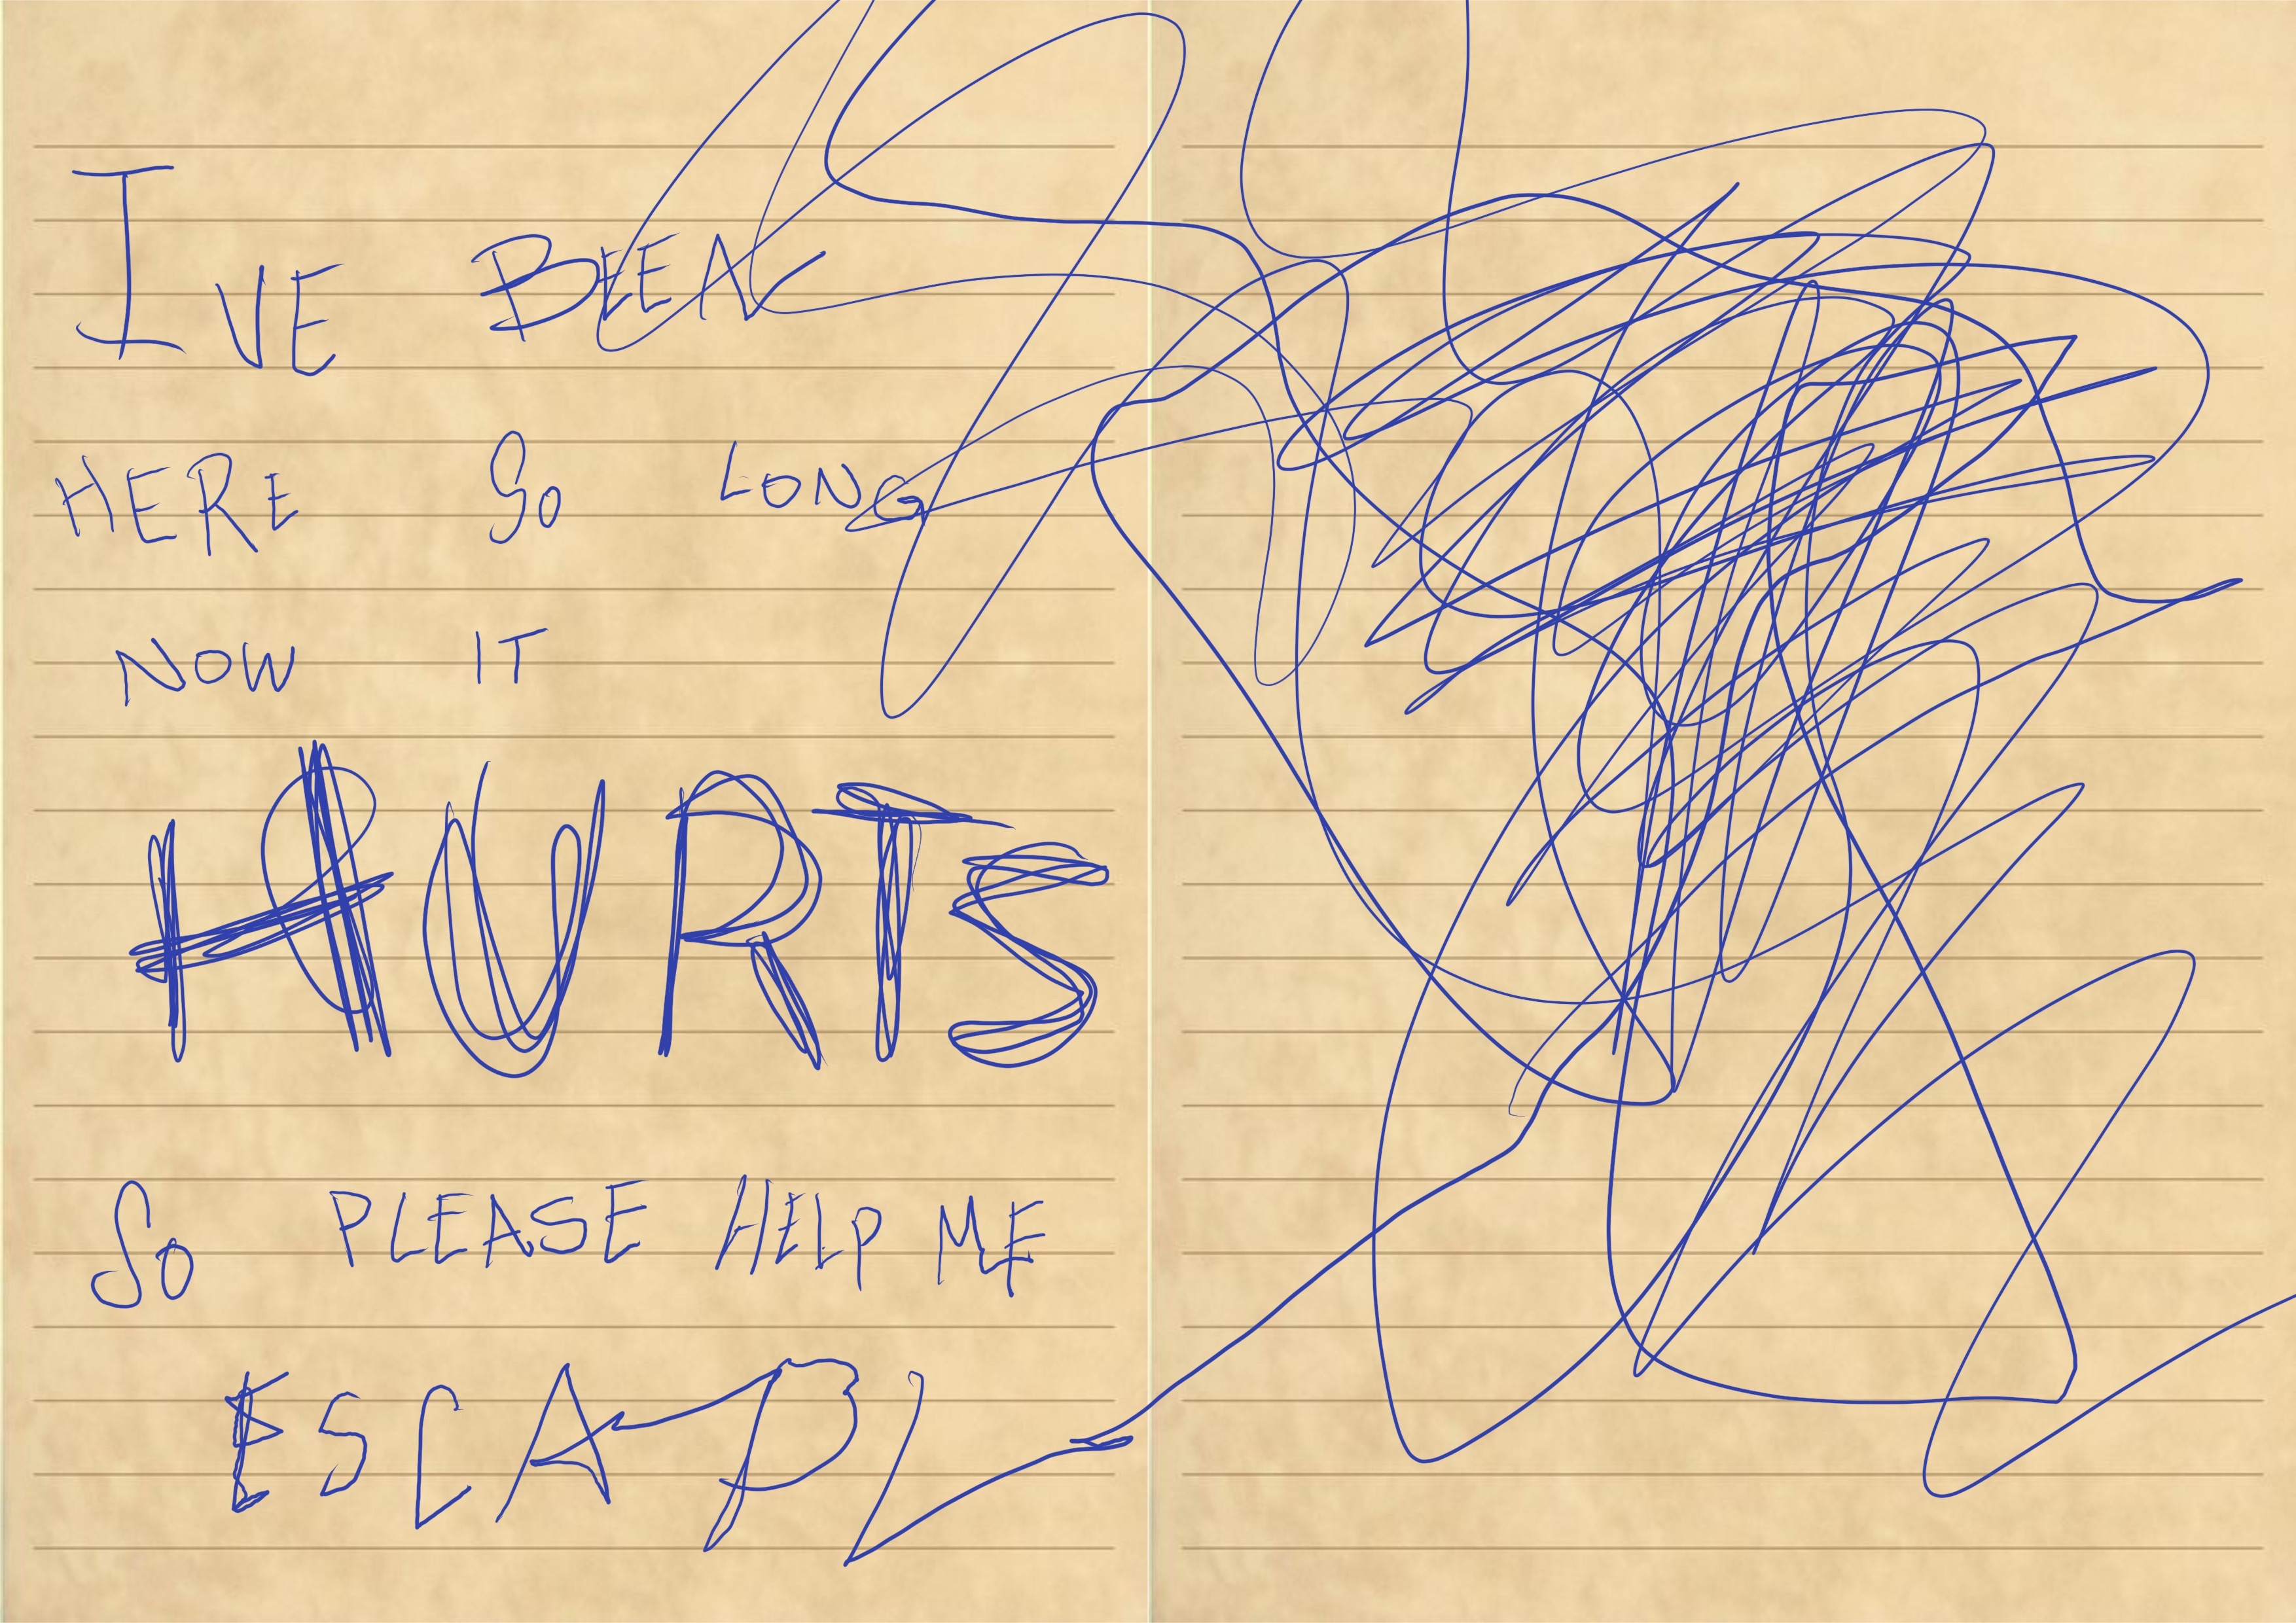 I'VE BEEN
HERE SO LONG
NOW IT
HURTS
SO PLEASE HELP ME
ESCAP